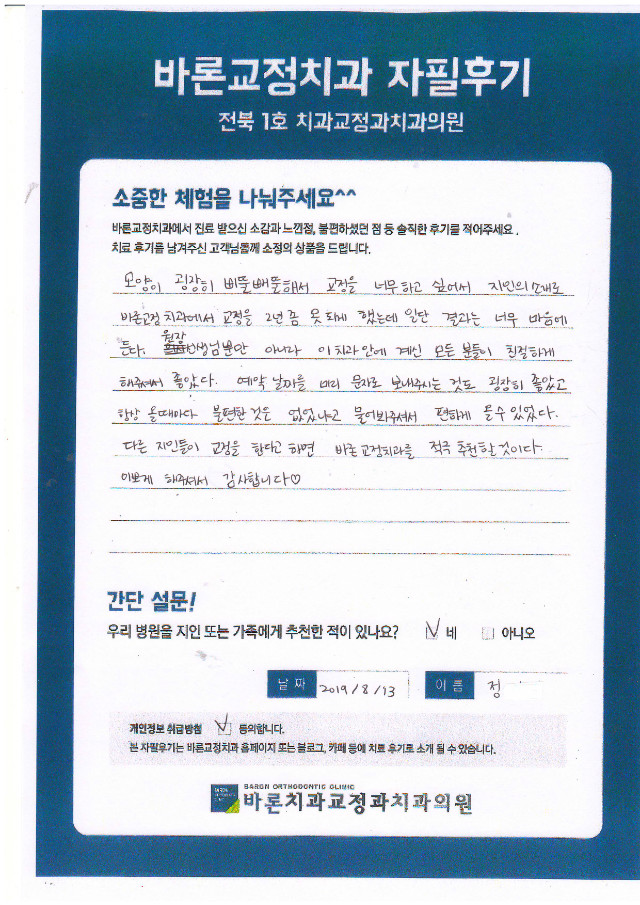 바론교정치과 자필후기
전북 1호 치과교정과치과의원
소중한 체험을 나눠주세요^^
바론교정치과에서 진료 받으신 소감과 느낀점, 불편하셨던 점 등 솔직한 후기를 적어주세요.
치료 후기를 남겨주신 고객님들께 소정의 상품을 드립니다.
모양이 굉장히 삐뚤빼뚤해서 교정을 너무하고 싶어서 지인의 소개로
바론교정치과에서 교정을 2년 좀 못되게 했는데 일단 결과는 너무 마음에
든다. 원장선생님뿐만 아니라 이치과안에 계신 모든 분들이 친절하게
해주셔서 좋았다. 예약 날짜를 미리 문자로 보내주시는 것도 굉장히 좋았고
항상 올때마다 불편한것은 없었냐고 물어봐주셔서 편하게 들수있었다.
다른 지인들이 교정을 한다고 하면 바론교정치과를 적극 추천할것이다.
이쁘게 해주셔서 감사합니다♡
간단 설문!
우리 병원을 지인 또는 가족에게 추천한 적이 있나요? ☑ 네 □ 아니오
날짜 2019/8/13 이름 정
개인정보 취급방침 ☑ 동의합니다.
본 자필후기는 바론교정치과 홈페이지 또는 블로그, 카페 등에 치료 후기로 소개 될 수 있습니다.
BARON ORTHODONTIC CLINIC
바론치과교정과치과의원